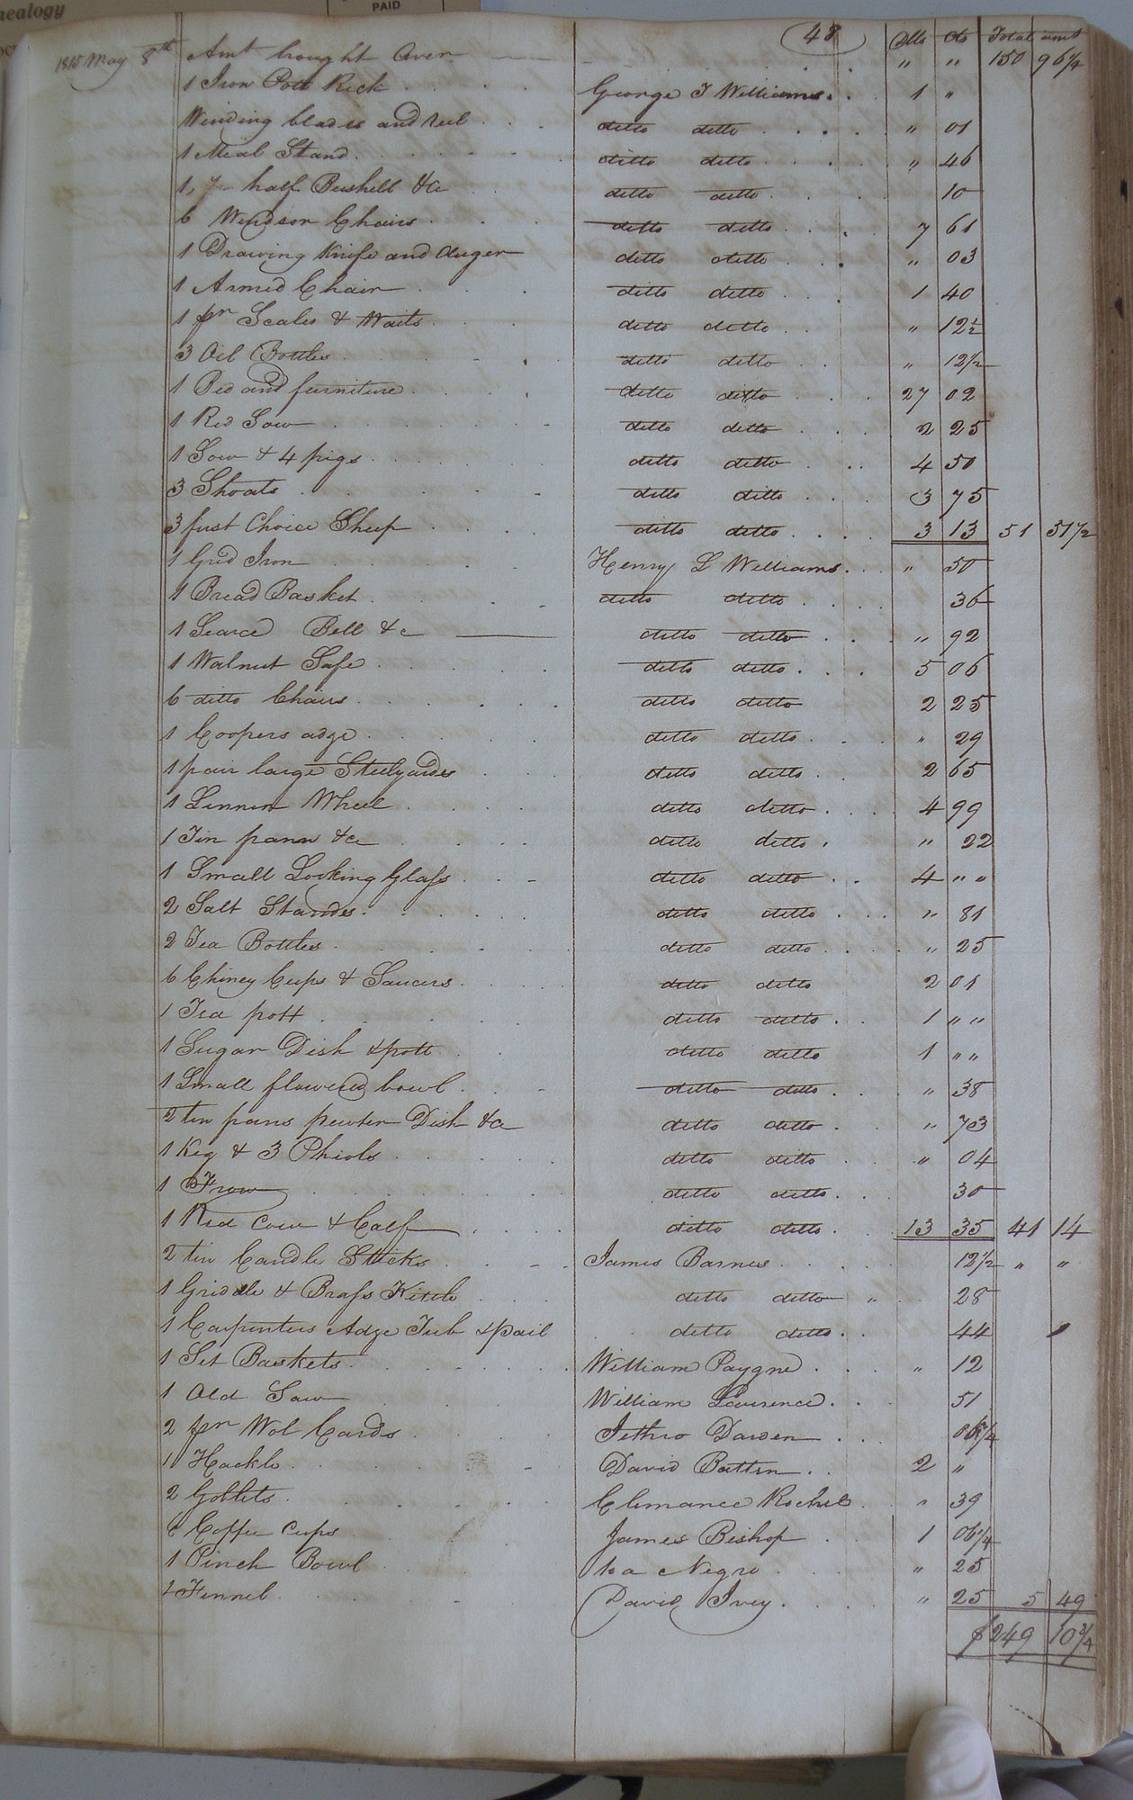 nealogy
PAID
48 Dlls Cts Total amt
1815 May 8th Amt brought Over " " 150 96 1/4
1 Iron Pott Rick George T Williams 1 "
Winding blades and reel ditto ditto " 01
1 Meal Stand ditto ditto " 46
1 half Bushell &c ditto ditto 10
6 Windsor Chairs ditto ditto 7 61
1 Drawing Knife and Auger ditto ditto " 03
1 Armed Chair ditto ditto 1 40
1 pr Scales & Waits ditto ditto " 12 1/2
3 Oil Bottles ditto ditto " 12 1/2
1 Bed and furniture ditto ditto 27 02
1 Red Sow ditto ditto 2 25
1 Sow & 4 pigs ditto ditto 4 50
3 Shoats ditto ditto 3 75
3 fust Choice Sheep ditto ditto 3 13 51 51 1/2
1 Grid Iron Henry L Williams " 50
1 Bread Basket ditto ditto 36
1 Searce Bell &c ditto ditto " 92
1 Walnut Safe ditto ditto 5 06
6 ditto Chairs ditto ditto 2 25
1 Coopers adge ditto ditto " 29
1 pair large Steelyardes ditto ditto 2 65
1 Linnen Wheel ditto ditto 4 99
1 Tin pann &c ditto ditto " 22
1 Small Looking Glass ditto ditto 4 " "
2 Salt Standes ditto ditto " 81
2 Tea Bottles ditto ditto " 25
6 Chiney Cups & Saucers ditto ditto 2 01
1 Tea pott ditto ditto 1 " "
1 Sugar Dish & pott ditto ditto 1 " "
1 Small flowered bowl ditto ditto " 38
2 tin pans pewter Dish &c ditto ditto " 703
1 Keg & 3 Phiols ditto ditto " 04
1 Frow ditto ditto 30
1 Red Cow & Calf ditto ditto 13 35 41 14
2 tin Candle Sticks James Barnes 12 1/2 " "
1 Griddle & Brass Kittle ditto ditto " 28
1 Carpenters Adge Tub & pail ditto ditto 44
1 Set Baskets William Paygne " 12
1 Old Saw William Lawrence 51
2 pr Wol Cards Jethro Darden 06 1/4
1 Hackle David Batten 2 "
2 Goblets Clemance Rochel " 39
6 Coffee Cups James Bishop 1 06 1/4
1 Pinch Bowl to a Negro " 25
1 Funnel David Ivey " 25 5 49
$249 10 3/4